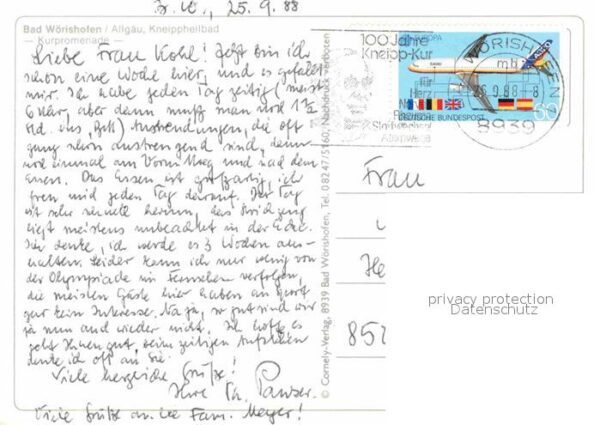 B. W., 25.9.88
Bad Wörishofen / Allgäu, Kneippheilbad
— Kurpromenade —
Liebe Frau Kohl! Jetzt bin ich
schon eine Woche hier, und es gefällt
mir. Ich habe jeden Tag zeitig (meist
6 Uhr, aber dann muß man noch 1½
Std. ins Bett) Anwendungen, die oft
schon anstrengend sind, dann
noch einmal am Vormittag und nach dem
Essen. Das Essen ist großartig, ich
freu mich jeden Tag darauf. Der Tag
ist sehr schnell herum, das Strickzeug
liegt meistens unbeachtet in der Ecke.
Ich denke, ich werde es 3 Wochen aus-
halten. Leider kann ich nur wenig von
der Olympiade im Fernsehen verfolgen,
die meisten Gäste hier haben an Sport
gar kein Interesse. Na ja, so gut sind wir
ja nun auch wieder nicht. Ich hoffe es
geht Ihnen gut, beim zeitigen Aufstehen
denke ich oft an Sie!
Viele herzliche Grüße!
Ihre Th. Panzer.
Viele Grüße an die Fam. Meyer!
© Cornely-Verlag, 8939 Bad Wörishofen, Tel. 08247/5160, Nachdruck verboten
100 Jahre
Kneipp-Kur
für
Herz
EUROPA
60
DEUTSCHE BUNDESPOST
BAD WÖRISHOFEN
mb
25.9.88-8
8939
Frau
852
privacy protection
Datenschutz